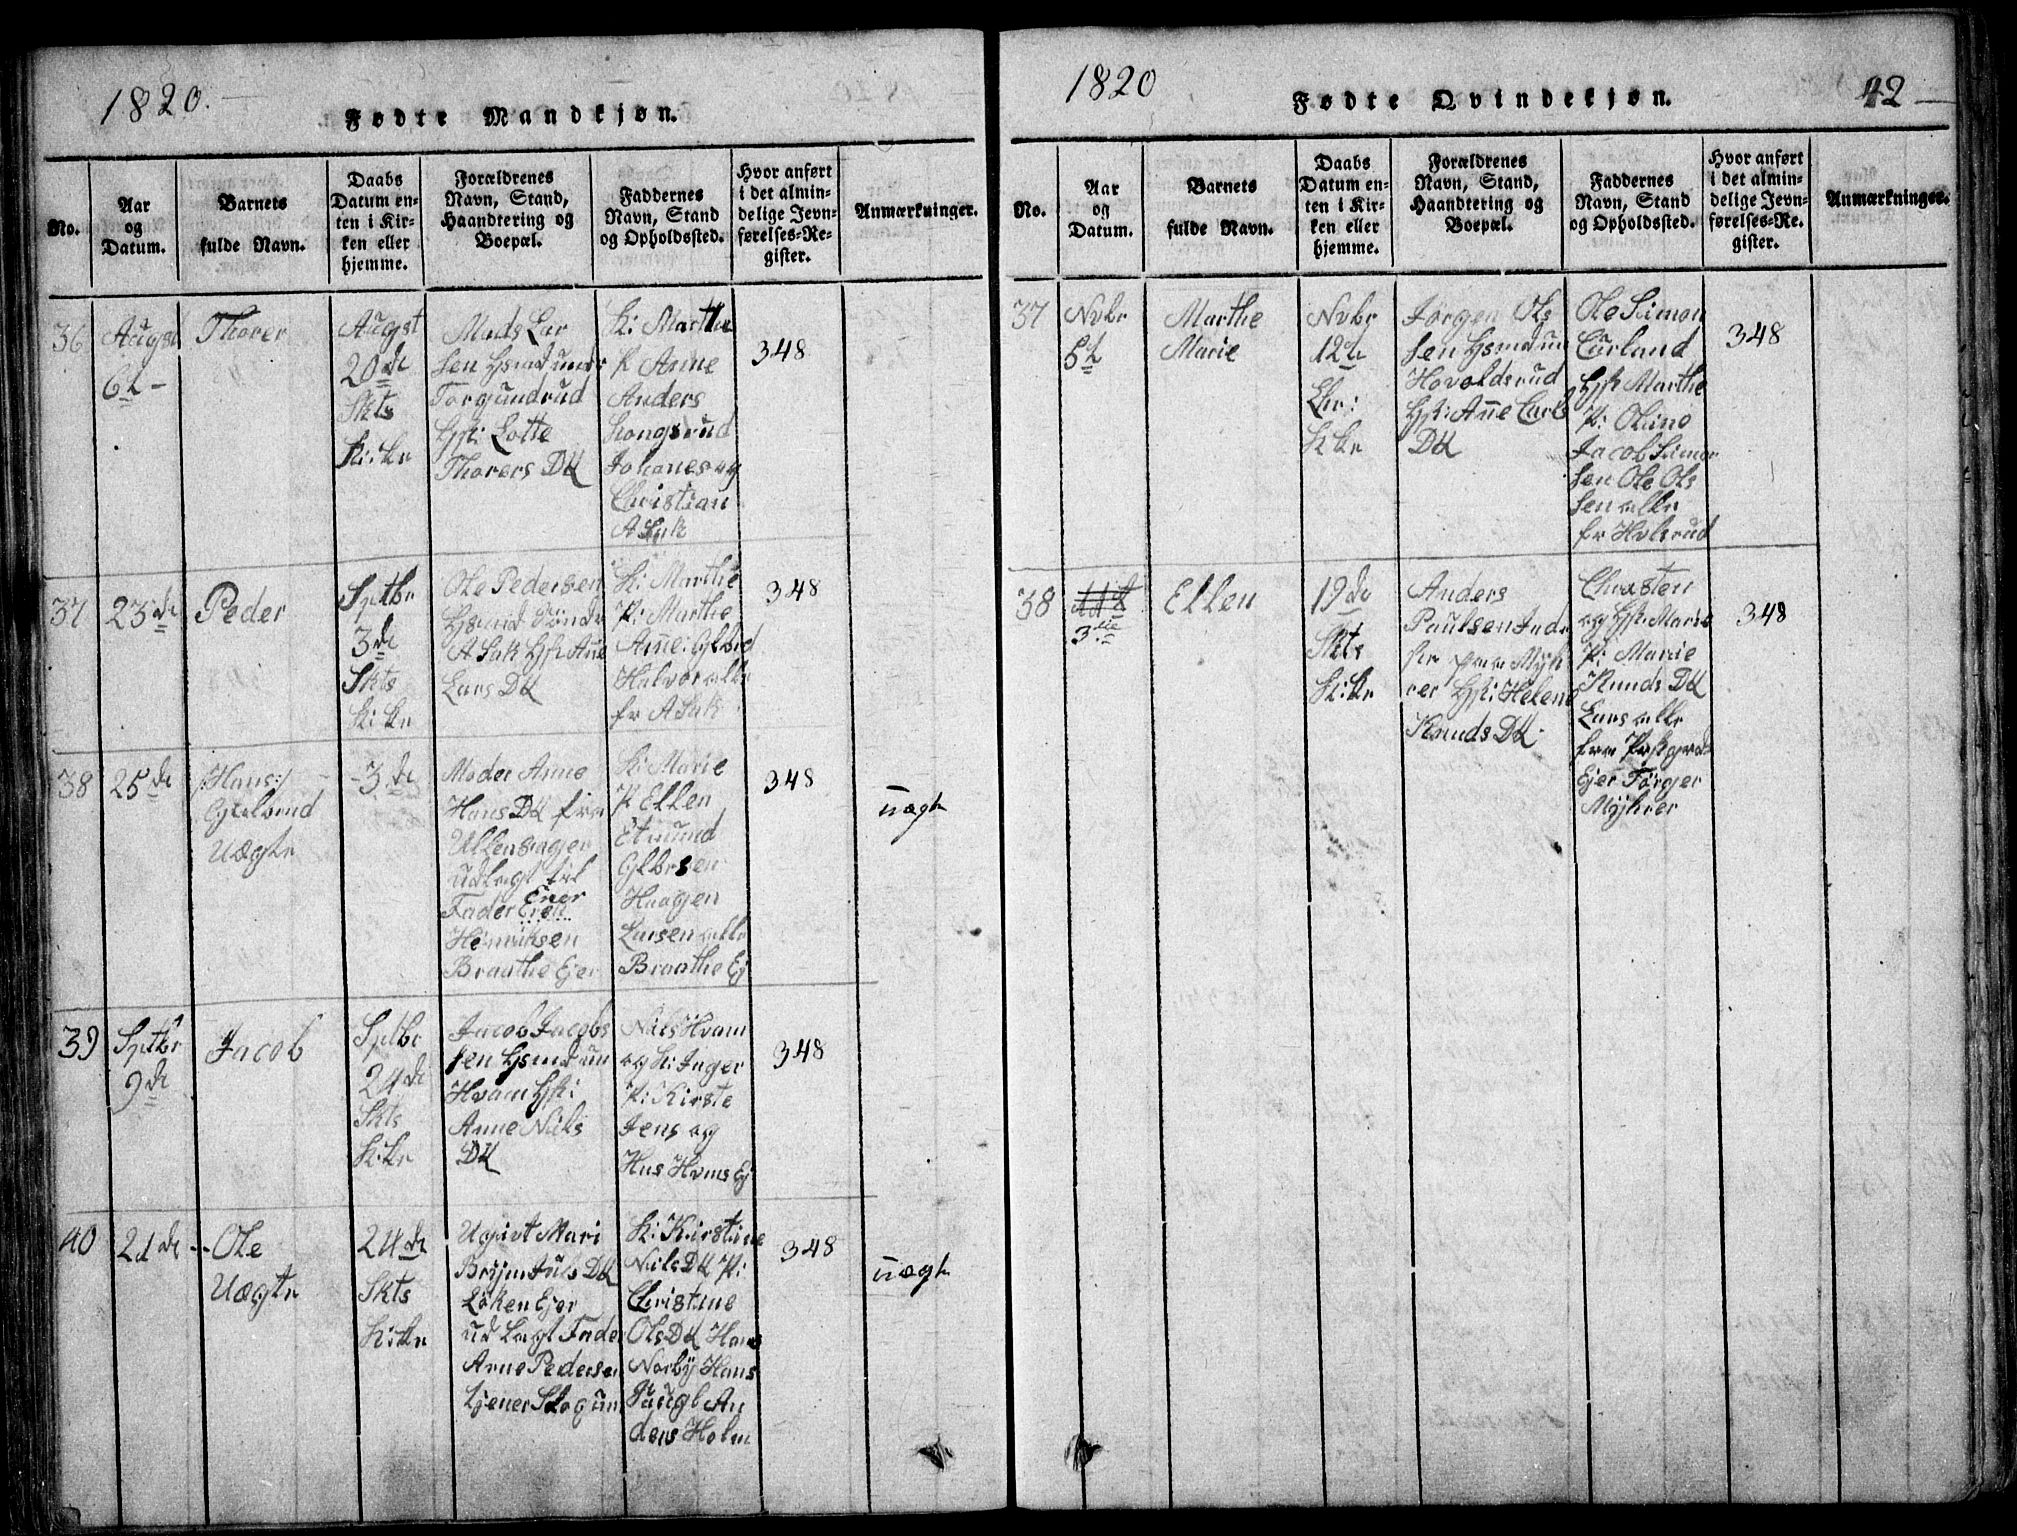 1820.
Fødte Mandkjøn.
No.
Aar
og
Datum.
Barnets
fulde Navn.
Daabs
Datum en-
ten i Kir-
ken eller
hjemme.
Forældrenes
Navn, Stand,
Haandtering og
Boepæl.
Faddernes
Navn, Stand
og Opholdssted.
Hvor anført
i det almin-
delige Jevn-
førelses-Re-
gister.
Anmærkninger.
36
Augst
6t
Thorer
Augst
20de
Skts
Kirke
Mads Lar
sen Hsmd under
Torgundrud
Hst: Lotte
Thorers Dtt
K: Marthe
P Anne
Anders
Kongsrud
Johanes og
Christian
Asak
348
37
23de
Peder
Sptbr
3de
Skts
Kirke
Ole Pedersen
Hsmd
Asak Hst Ane
Lars Dtt
K: Marthe
P: Marthe
Anne: Glbrd
Halvor alle
fr Asak
348
38
25de
Hans
Uægte
3de
Moder Anne
Hans Dtt fra
Ullensager
udlagt til
Fader Ener
Henriksen
Braathe Ejer
K: Marie
P Ellen
Etmund
Glbrsen
Haagen
Larsen alle
Braathe Ej
348
uægt
39
Sptbr
9de
Jacob
Sptbr
24de
Skts
Kirke
Jacob Jacobs
sen Hsmd un
Hvam Hst:
Anne Niels
Dtt
Niels Hvam
og K: Inger
P: Kirste
Jens og
Hns Hvms Ej
348
40
21de
Ole
Uægte
24de
Skts
Kirke
Ugivt Mari
Dtt
Løken Ejer
udlagt Fader
Arne Pedersen
tjener
K: Kirstine
Niels Dtt P:
Christine
Ols Dtt Hans
Norby Hans
An
ders Holm
348
uægt
1820
Fødte Qvindekjøn.
42
No.
Aar
og
Datum.
Barnets
fulde Navn.
Daabs
Datum en-
ten i Kir-
ken eller
hjemme.
Forældrenes
Navn, Stand,
Haandtering og
Boepæl.
Faddernes
Navn, Stand
og Opholdssted.
Hvor anført
i det almin-
delige Jevn-
førelses-Re-
gister.
Anmærkninger.
37
Nvbr
5t
Marthe
Marie
Nvbr
12te
Kke
Jørgen Ols
sen Hsmd un
Hovoldsrud
Hst: Ane Carls
Dtt
Ole Simon
Hst Marthe
P: Oline
Jacob Simon
sen Ole Ols
sen alle
fr Holsrud
348
38
3die
Ellen
19de
Skts
Kirke
Anders
Paulsen Inder
ster Myh
rer Hst: Helene
Knuds Dtt
Christen
og Hst: Marie
P: Marie
Knuds Dtt
Lars alle
fra
Ejer Torger
Myhrer
348